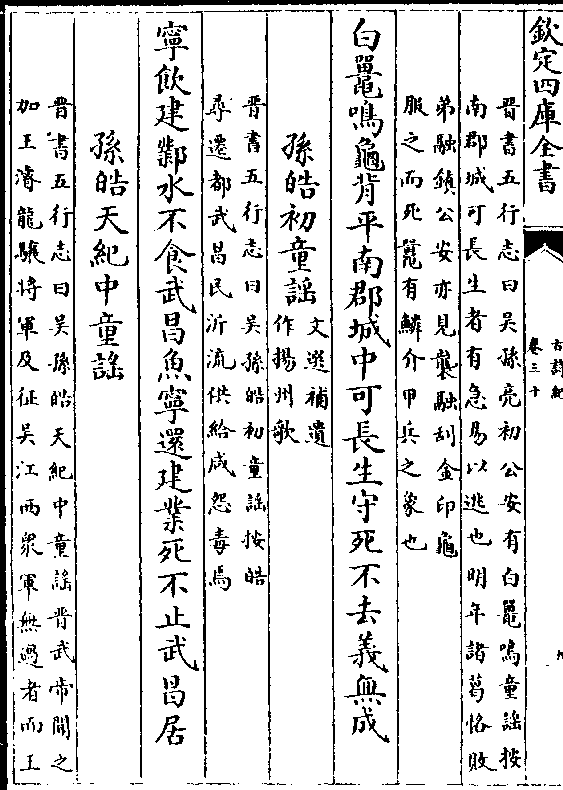 欽定四庫全書
古詩紀
卷三十
晉書五行志曰吳孫亮初公安有白鼉鳴童謡按
南郡城可長生者有急易以逃也明年諸葛恪敗
弟融鎮公安亦見襲融刮金印龜
服之而死鼉有鱗介甲兵之象也
白鼉鳴龜背平南郡城中可長生守死不去義無成
孫皓初童謡
文選補遺
作揚州歌
晉書五行志曰吳孫皓初童謡按皓
尋遷都武昌民泝流供給咸怨毒焉
寧飲建鄴水不食武昌魚寧還建業死不止武昌居
孫皓天紀中童謡
晉書五行志曰吳孫皓天紀中童謡晉武帝聞之
加王濬龍驤將軍及征吳江西衆軍無過者而王